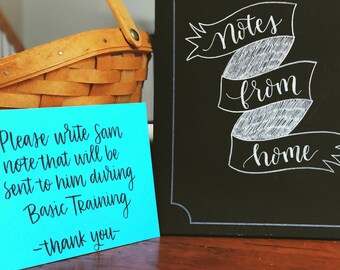 Please write Sam
note that will be
sent to him during
Basic Training
-thank you-
Notes
from
home